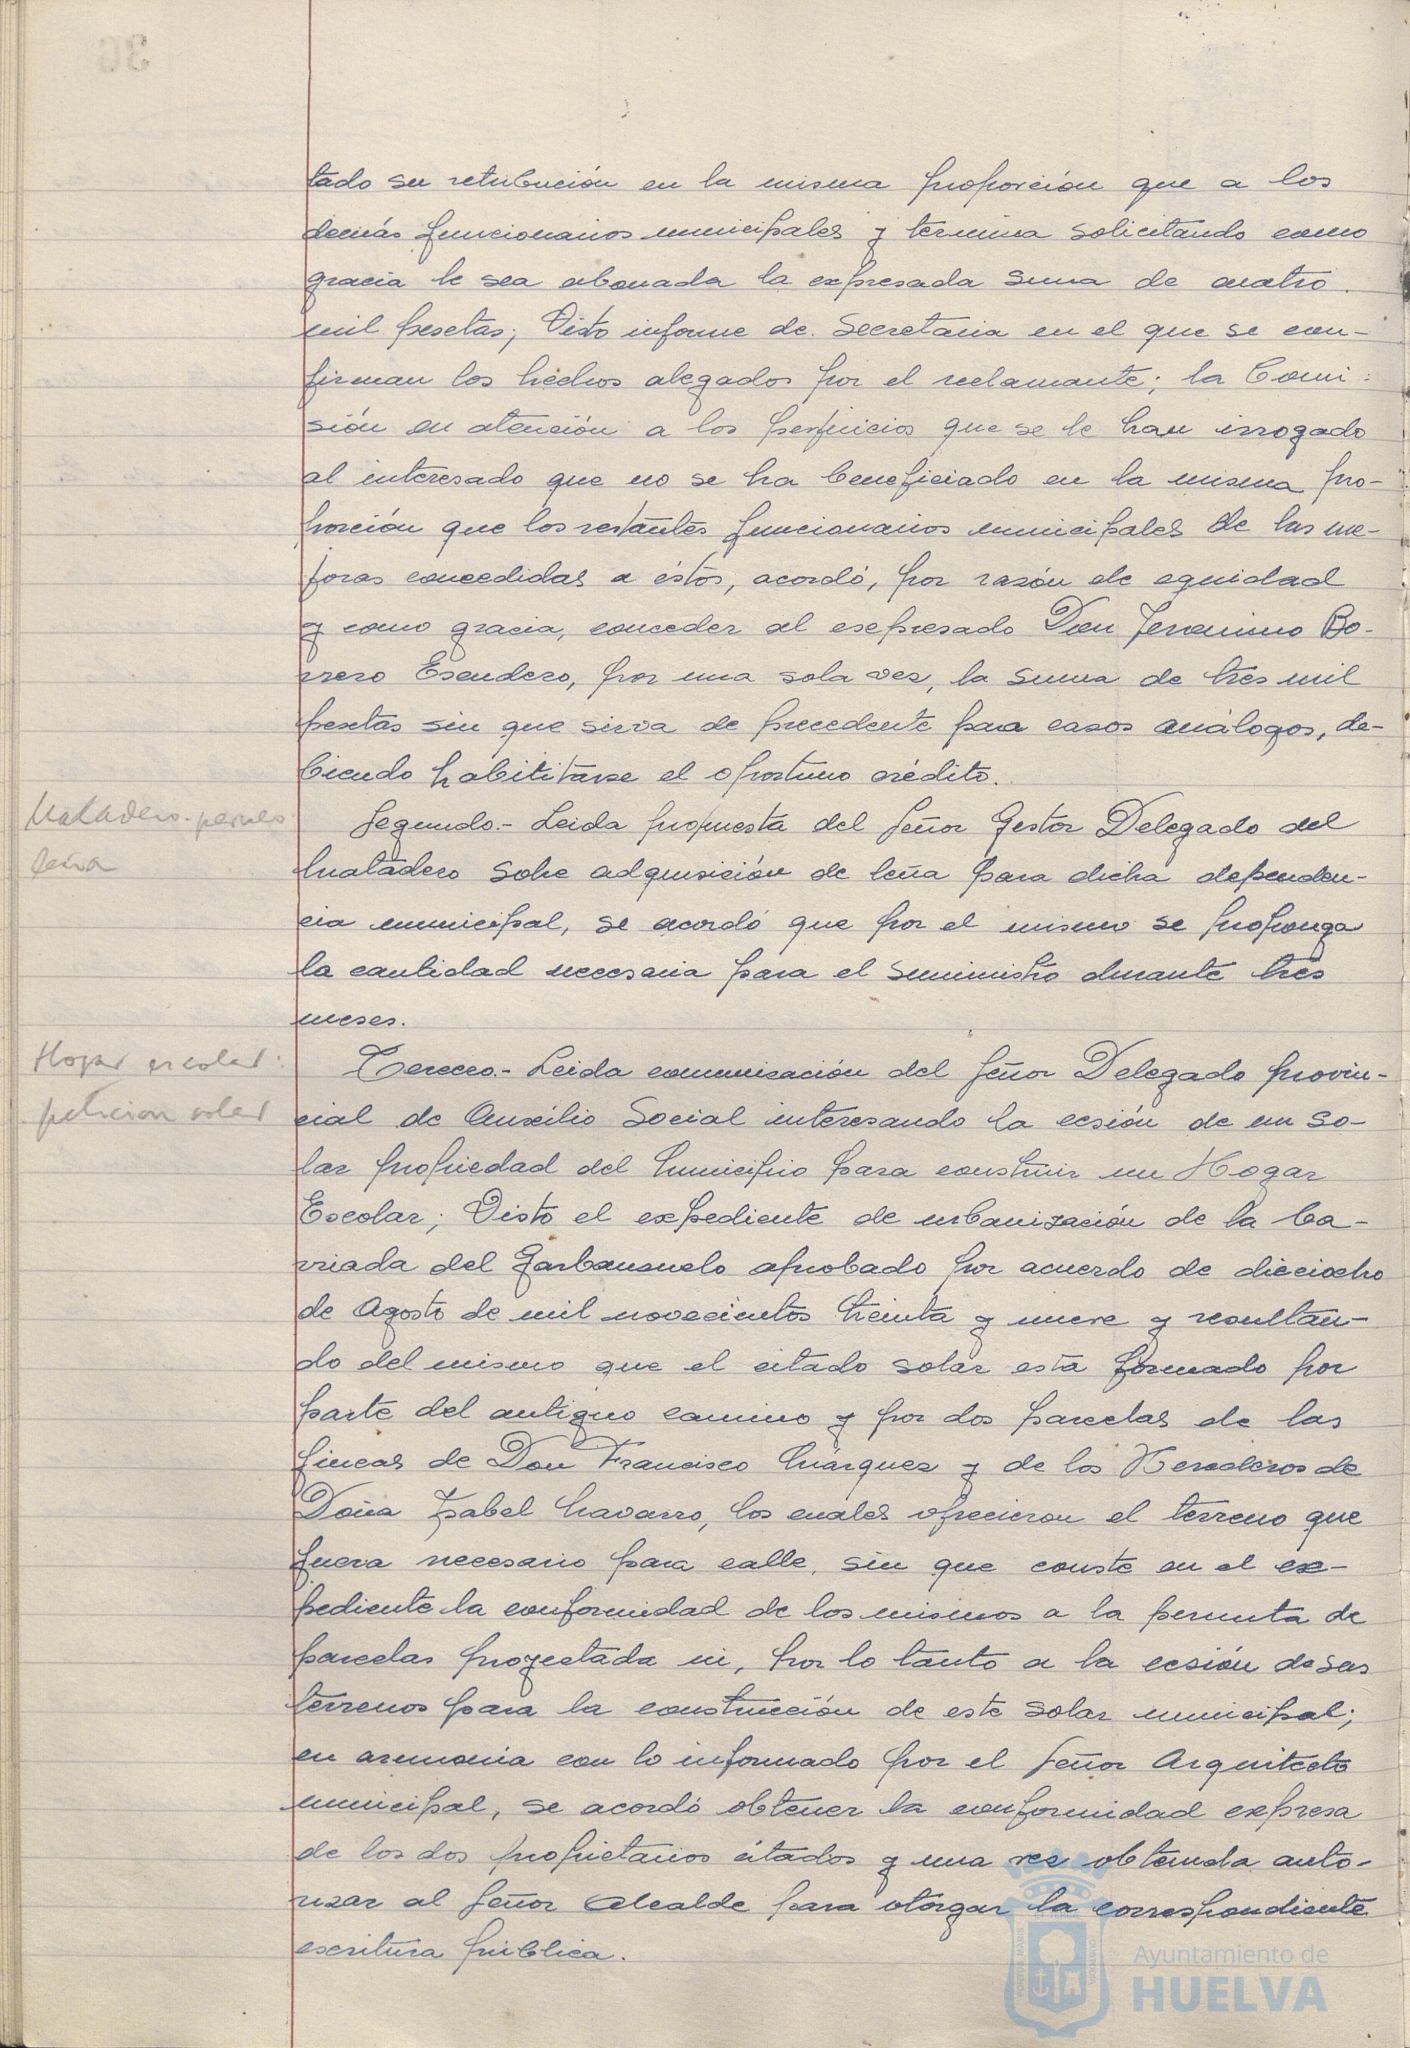 tado su retribución en la misma proporción que a los
demás funcionarios municipales y termina solicitando como
gracia le sea abonada la expresada suma de cuatro
mil pesetas; Visto informe de Secretaria en el que se con-
firman los hechos alegados por el reclamante; la Comi-
sión en atención a los perjuicios que se le han irrogado
al interesado que no se ha beneficiado en la misma pro-
porción que los restantes funcionarios municipales de las me-
joras concedidas a éstos, acordó, por razón de equidad
y como gracia, conceder al expresado Don Jeronimo Bo-
rrero Escudero, por una sola vez, la suma de tres mil
pesetas sin que sirva de precedente para casos análogos, de-
biendo habilitarse el oportuno crédito.
Matadero
leña
Segundo.- Leida propuesta del Señor Gestor Delegado del
Matadero sobre adquisición de leña para dicha dependen-
cia municipal, se acordó que por el mismo se proponga
la cantidad necesaria para el suministro durante tres
meses.
Hogar escolar:
petición solar
Tercero.- Leida comunicación del Señor Delegado provin-
cial de Auxilio Social interesando la cesión de un so-
lar propiedad del Municipio para construir un Hogar
Escolar; Visto el expediente de urbanización de la ba-
rriada del Garbanzuelo aprobado por acuerdo de dieciocho
de Agosto de mil novecientos treinta y nueve y resultan-
do del mismo que el citado solar esta formado por
parte del antiguo camino y por dos parcelas de las
fincas de Don Francisco Márquez y de los Herederos de
Doña Isabel Navarro, los cuales ofrecieron el terreno que
fuera necesario para calle, sin que conste en el ex-
pediente la conformidad de los mismos a la permuta de
parcelas proyectada ni, por lo tanto a la cesión de sus
terrenos para la construcción de este solar municipal;
en armonia con lo informado por el Señor Arquitecto
municipal, se acordó obtener la conformidad expresa
de los dos propietarios citados y una vez obtenida auto-
rizar al Señor Alcalde para otorgar la correspondiente
escritura pública.
Ayuntamiento de
HUELVA